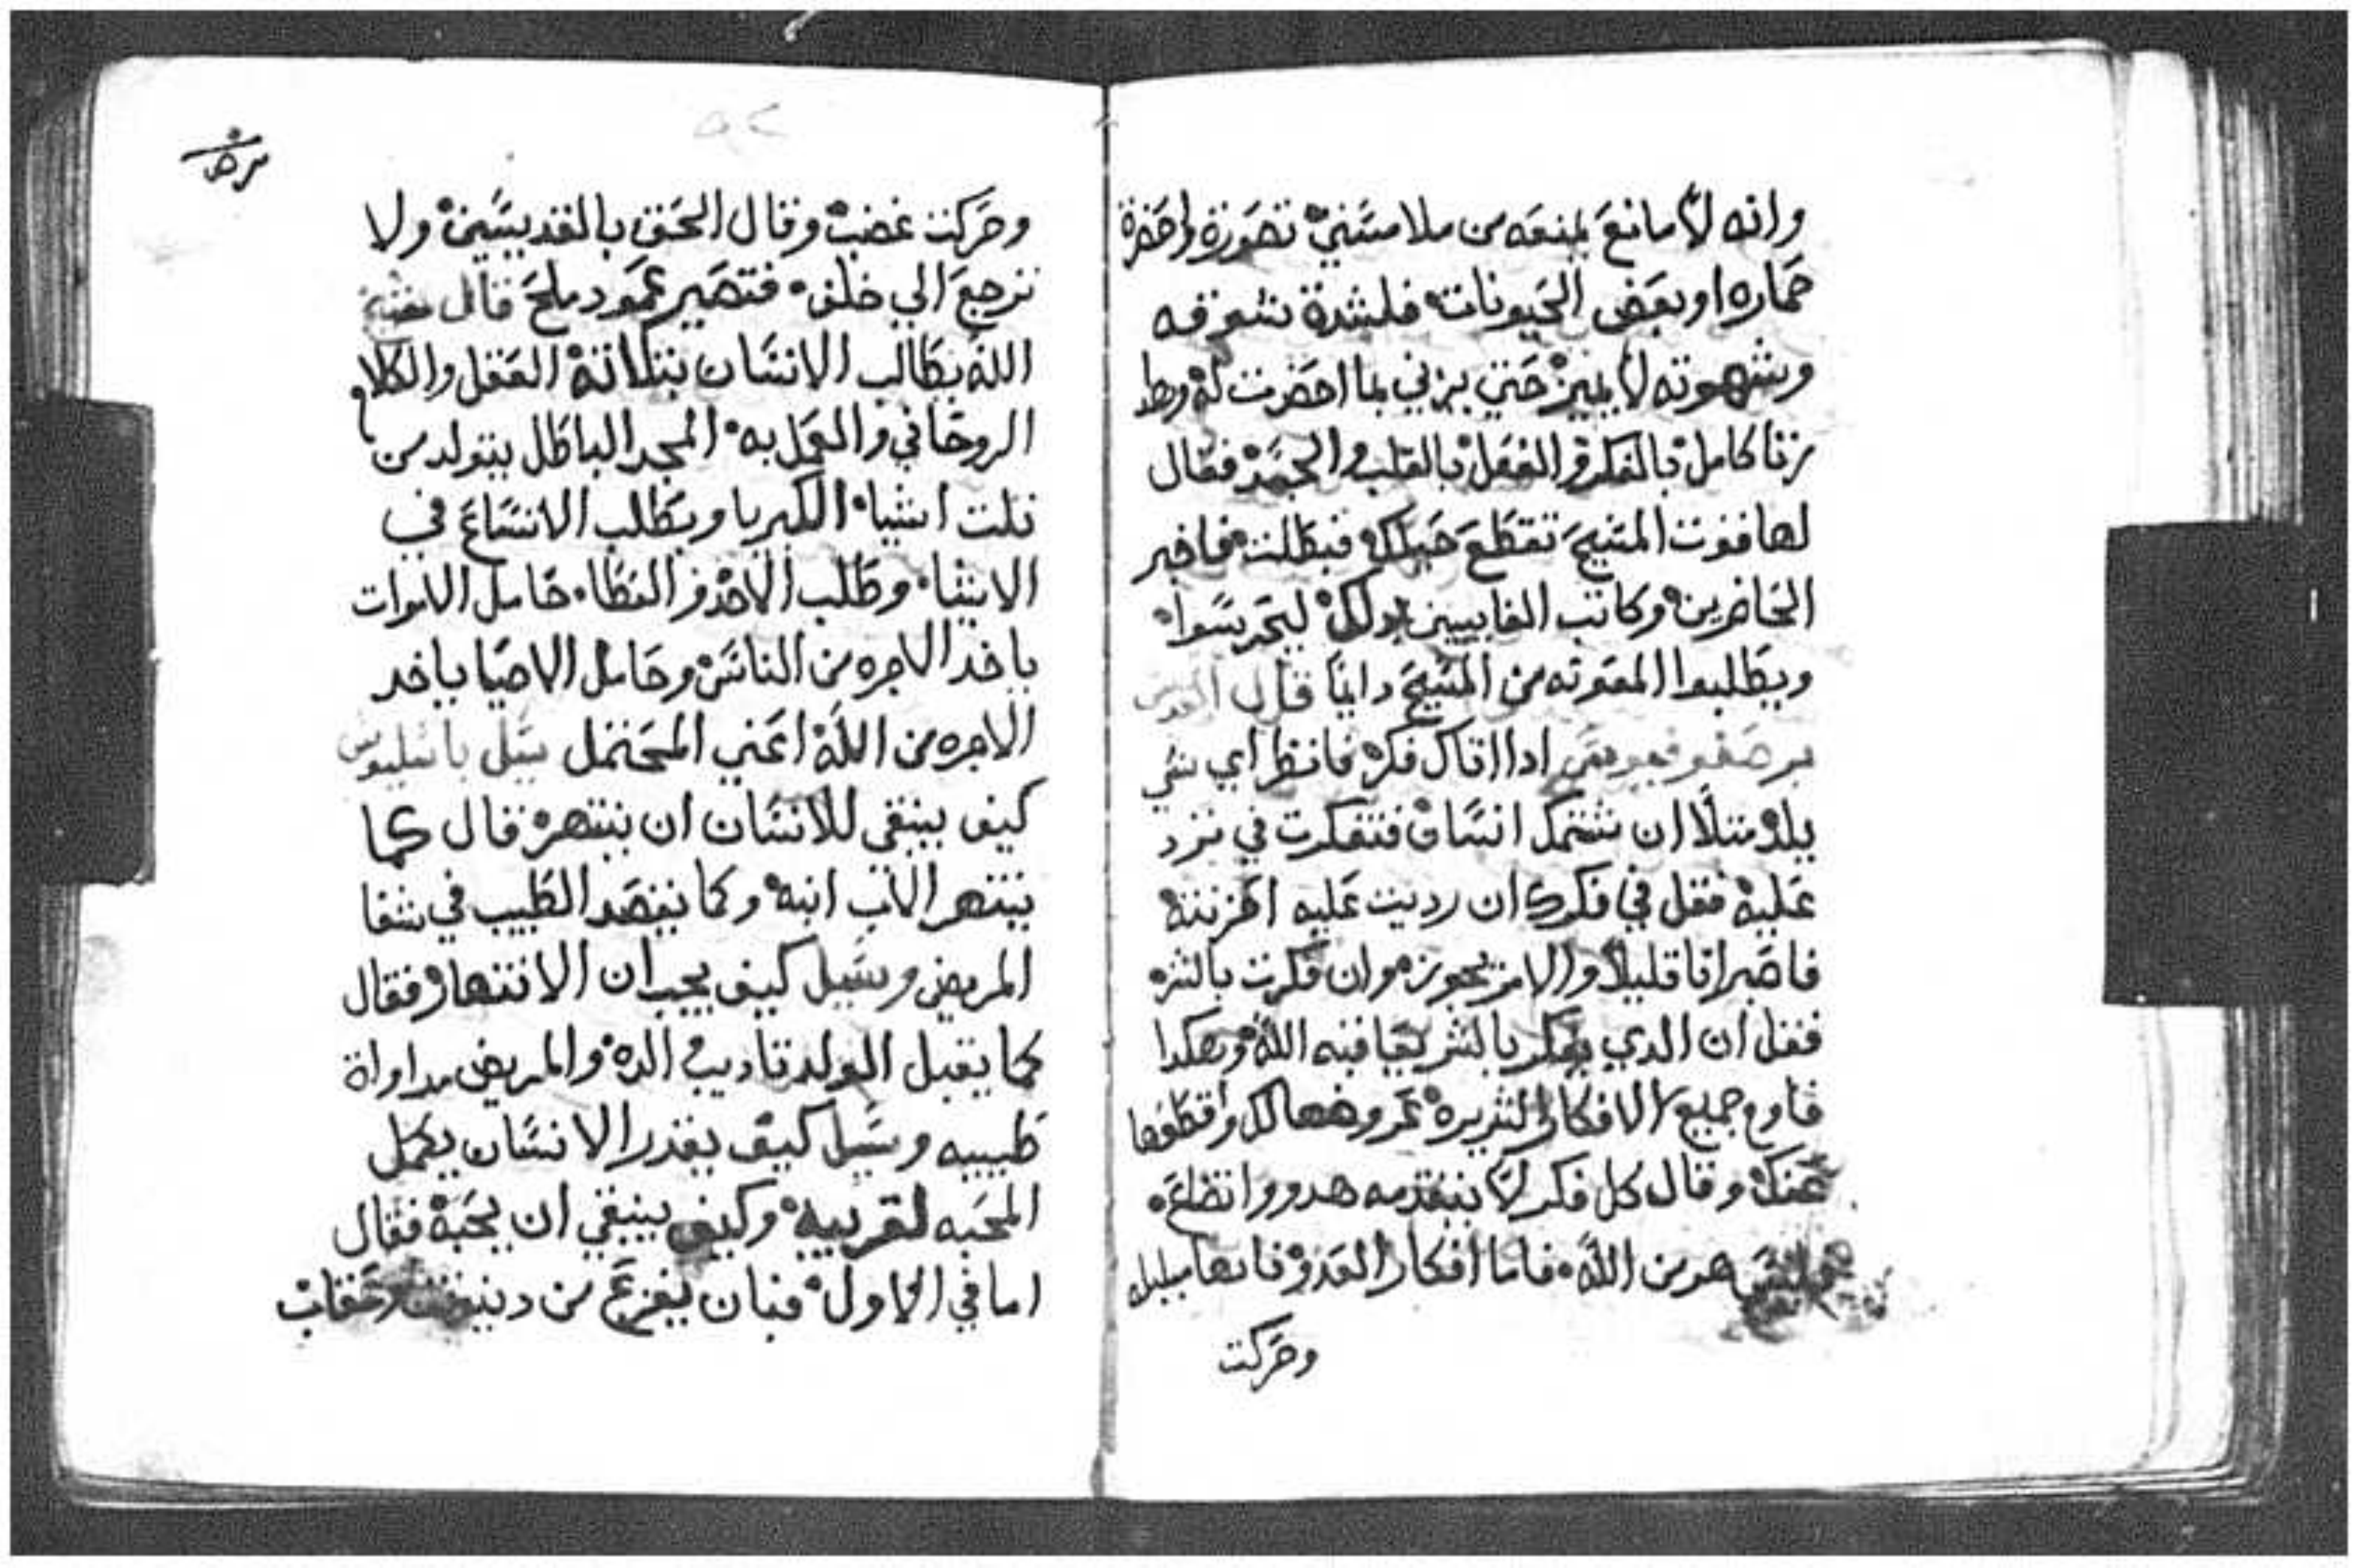 وانه لا مانع يمنعه من ملامستي تصورة واحضرة
حماره او بعض الحيونات فلشدة شغفه
وشهوته لا يميز حتي يزني بما احضرت له
زنا كامل بالفكر والفعل بالقلب والجسد فقال
لها قوت المسيح تقطع حبلك فبطلت فاخبر
الحاضرين وكاتب الغايبين بدلك ليحرسوا
ويطلبوا المعونه من المسيح دايما قال
برصنوفيوس ادا اتاك فكر فانظر اي شي
يلد مثلا ان شتمك انسان فتفكرت في ترد
عليه فقل في فكرك ان رديت عليه احزنته
فاصبر انا قليلا والامر يجوز وان فكرت بالشر
فقل ان الدي يفكر بالشر يعاقبه الله وهكدا
قاوم جميع الافكار الشريره عند وضعها لك واقطعها
عنك وقال كل فكر لا يتقدمه هدو واتضاع
فليس هو من الله فاما افكار العدو فانها ببلبله
وحركت
وحركت غضب وقال الحق بالقديسين ولا
ترجع الي خلف فتصير عمود ملح قال
الله يطالب الانسان بتلاتة العقل والكلام
الروحاني والعمل به المجد الباطل يتولد من
تلت اشيا الكبريا ويطلب الاتساع في
الاشيا وطلب الاخذ والعطا حامل الاموات
ياخد الاجره من الناس وحامل الاحيا ياخد
الاجره من الله اعني المحتمل سيل باسليوس
كيف ينبغي للانسان ان ينتهر قال كما
ينتهر الاب ابنه وكما يقصد الطبيب في شفا
المريض وسيل كيف يجب ان الانتهار فقال
كما يقبل الولد تاديب الده والمريض مداواة
طبيبه وسيل كيف يقدر الانسان يكمل
المحبه لقريبه وكيف ينبغي ان يحبه فقال
اما في الاول فبان يفزع من دينونت وعقاب